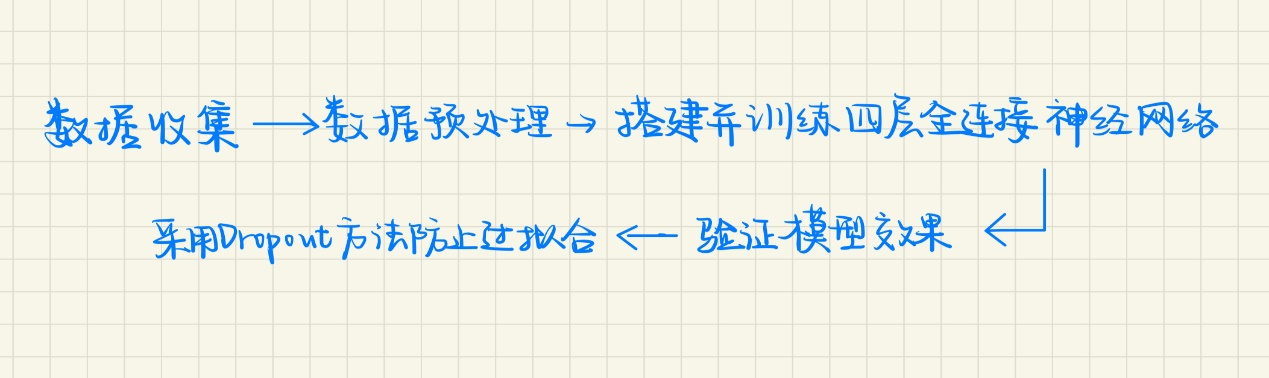 数据收集 → 数据预处理 → 搭建并训练四层全连接神经网络
采用Dropout方法防止过拟合 ← 验证模型效果 ←